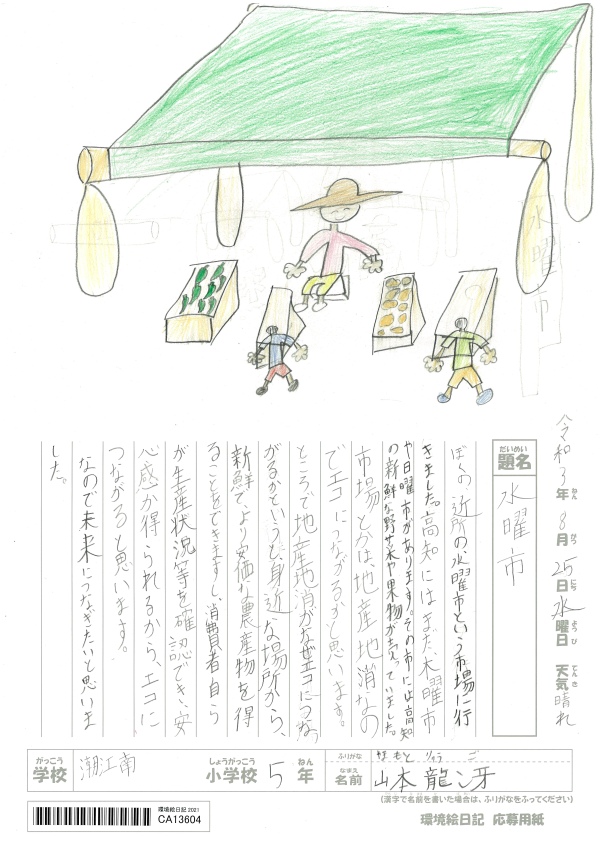 水曜市
令和3年 8月 25日 水曜日 天気 晴れ
だいめい
題名
水曜市
ぼくの近所の水曜市という市場に行
きました。高知にはまだ、木曜市
や日曜市があります。その市には高知
の新鮮な野菜や果物が売っていました。
市場とかは地産地消なの
でエコにつながるかと思います。
ところで地産地消がなぜエコにつな
がるかというと、身近な場所から、
新鮮でより安価な農産物を得
ることをできますし、消費者自ら
が生産状況等を確認でき、安
心感が得られるから、エコに
つながると思います。
なので未来につなぎたいと思いま
した。
がっこう
学校 潮江南 小学校 5年
しょうがっこう ねん
ふりがな やまもと りゅうご
なまえ
名前 山本 龍冴
(漢字で名前を書いた場合は、ふりがなをふってください)
環境絵日記 2021
CA13604
環境絵日記 応募用紙